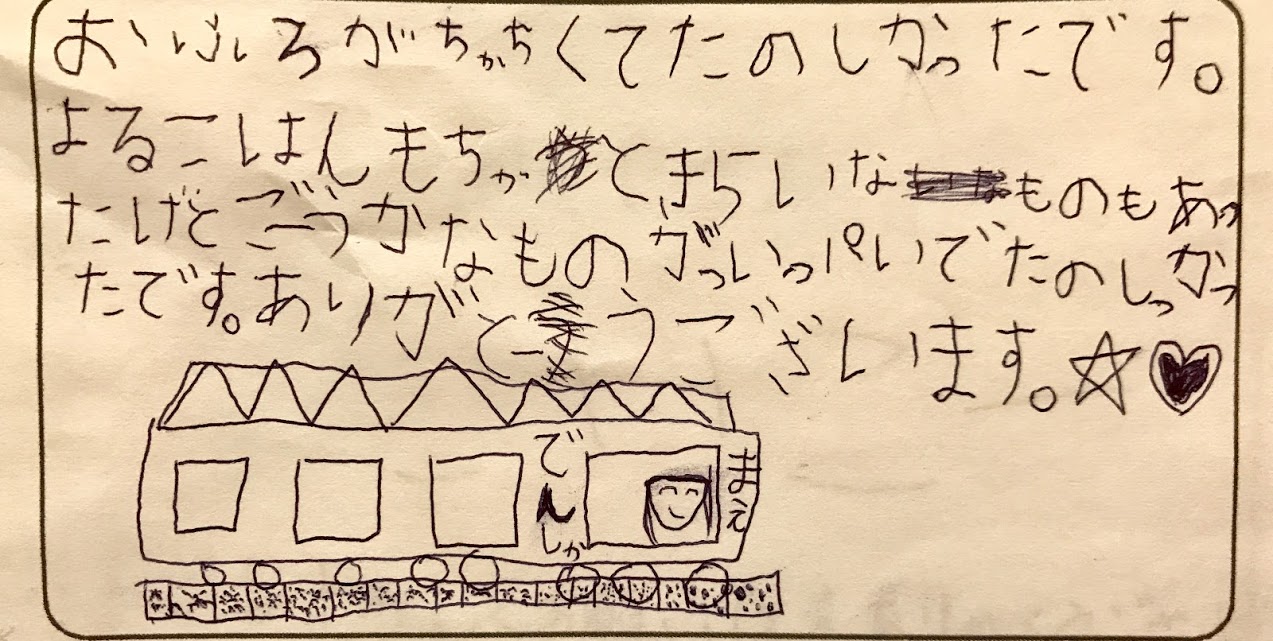 おふろがちかちくてたのしかったです。
よるごはんもちがとまらいなものもあっ
たけどごうかなものがっいっぱいでたのしっかっ
たです。ありがとうございます。☆♥
でんしか
まえ